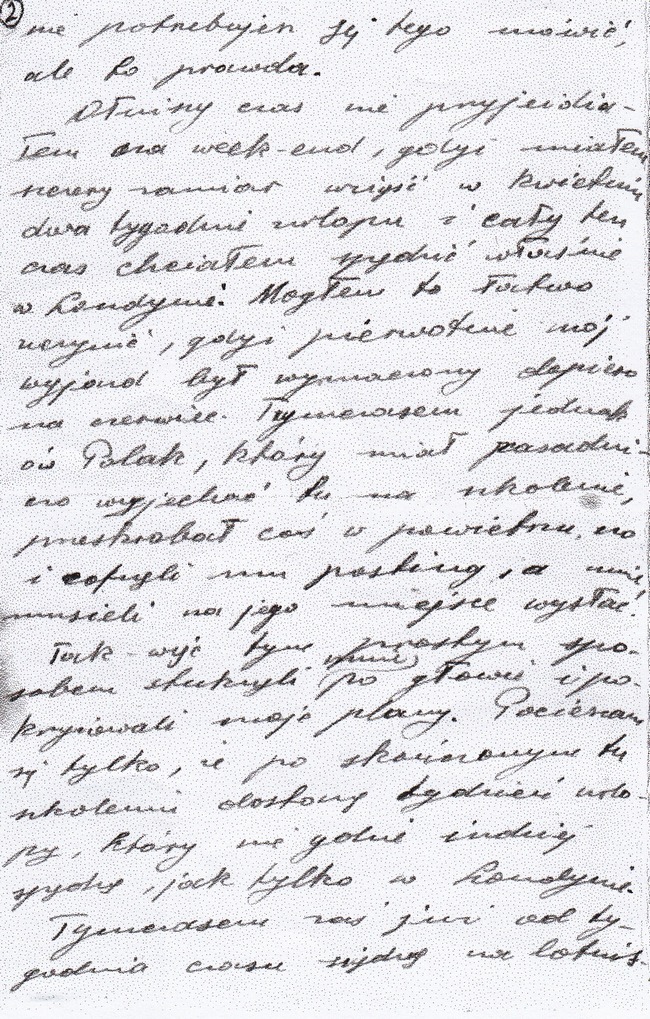 2
nie potrzebuję Ci tego mówić,
ale to prawda.
Dłuższy czas nie przyjeżdża-
łem na week-end, gdyż miałem
szczery zamiar wziąść w kwietniu
dwa tygodnie urlopu i cały ten
czas chciałem spędzić właśnie
w Londynie. Mogłem to łatwo
uczynić, gdyż pierwotnie mój
wyjazd był wyznaczony dopiero
na czerwiec. Tymczasem jednak
ów Polak, który miał zasadni-
czo wyjechać tu na szkolenie,
przeskrobał coś w powietrzu, no
i cofnęli mu posting, a mnie
musieli na jego miejsce wysłać.
Tak więc tym prostym spo-
sobem stuknęli mnie po głowie i po-
krzyżowali moje plany. Pocieszam
się tylko, że po skończonym tu
szkoleniu dostanę tydzień urlo-
pu, który nie gdzie indziej
spędzę, jak tylko w Londynie.
Tymczasem zaś już od ty-
godnia czasu siedzę na lotnis-